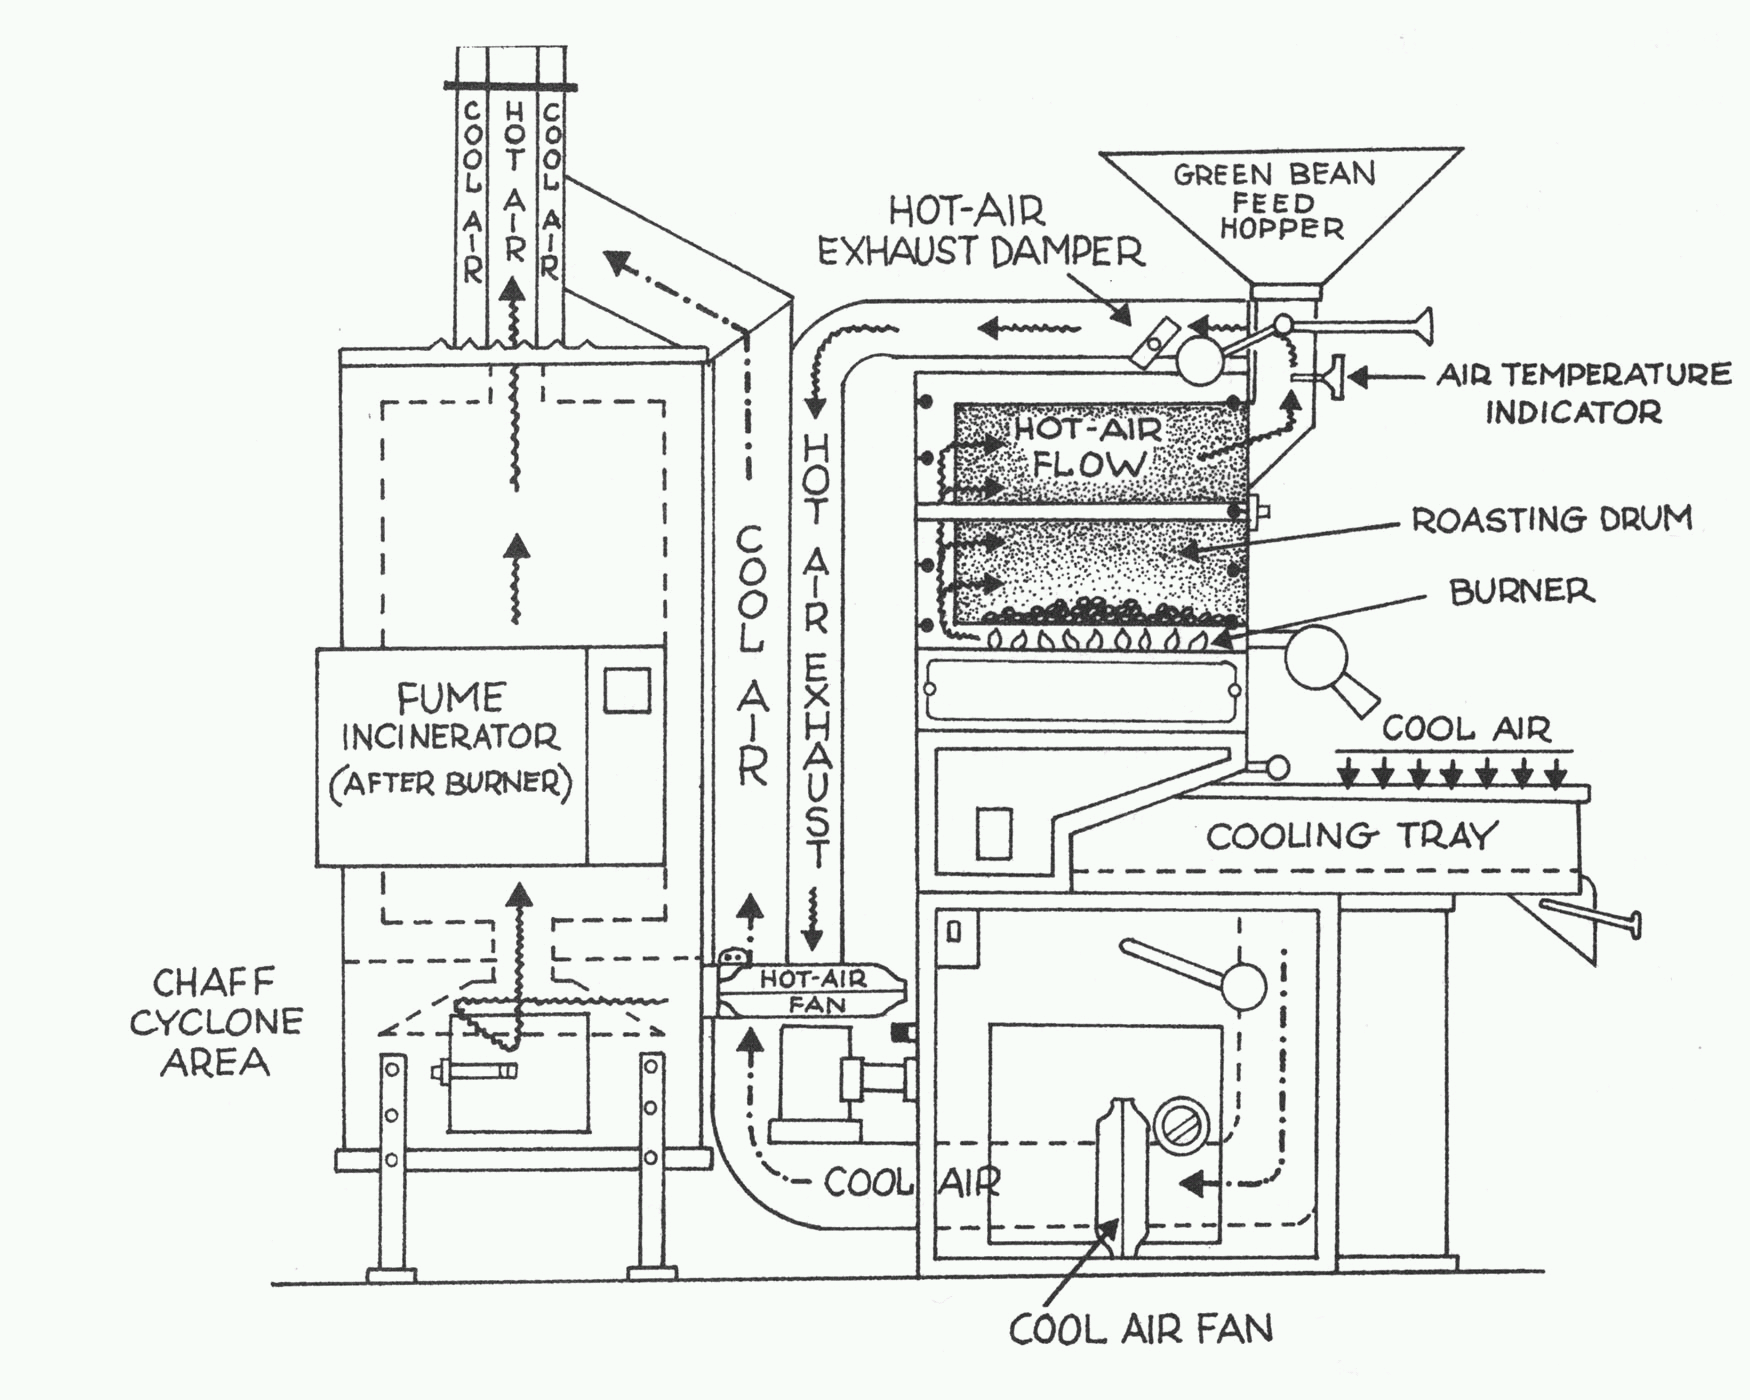 COOL AIR
HOT AIR
COOL AIR
GREEN BEAN
FEED
HOPPER
HOT-AIR
EXHAUST DAMPER
AIR TEMPERATURE
INDICATOR
HOT-AIR
FLOW
HOT AIR EXHAUST
COOL AIR
ROASTING DRUM
BURNER
FUME
INCINERATOR
(AFTER BURNER)
COOL AIR
COOLING TRAY
CHAFF
CYCLONE
AREA
HOT-AIR
FAN
COOL AIR
COOL AIR FAN